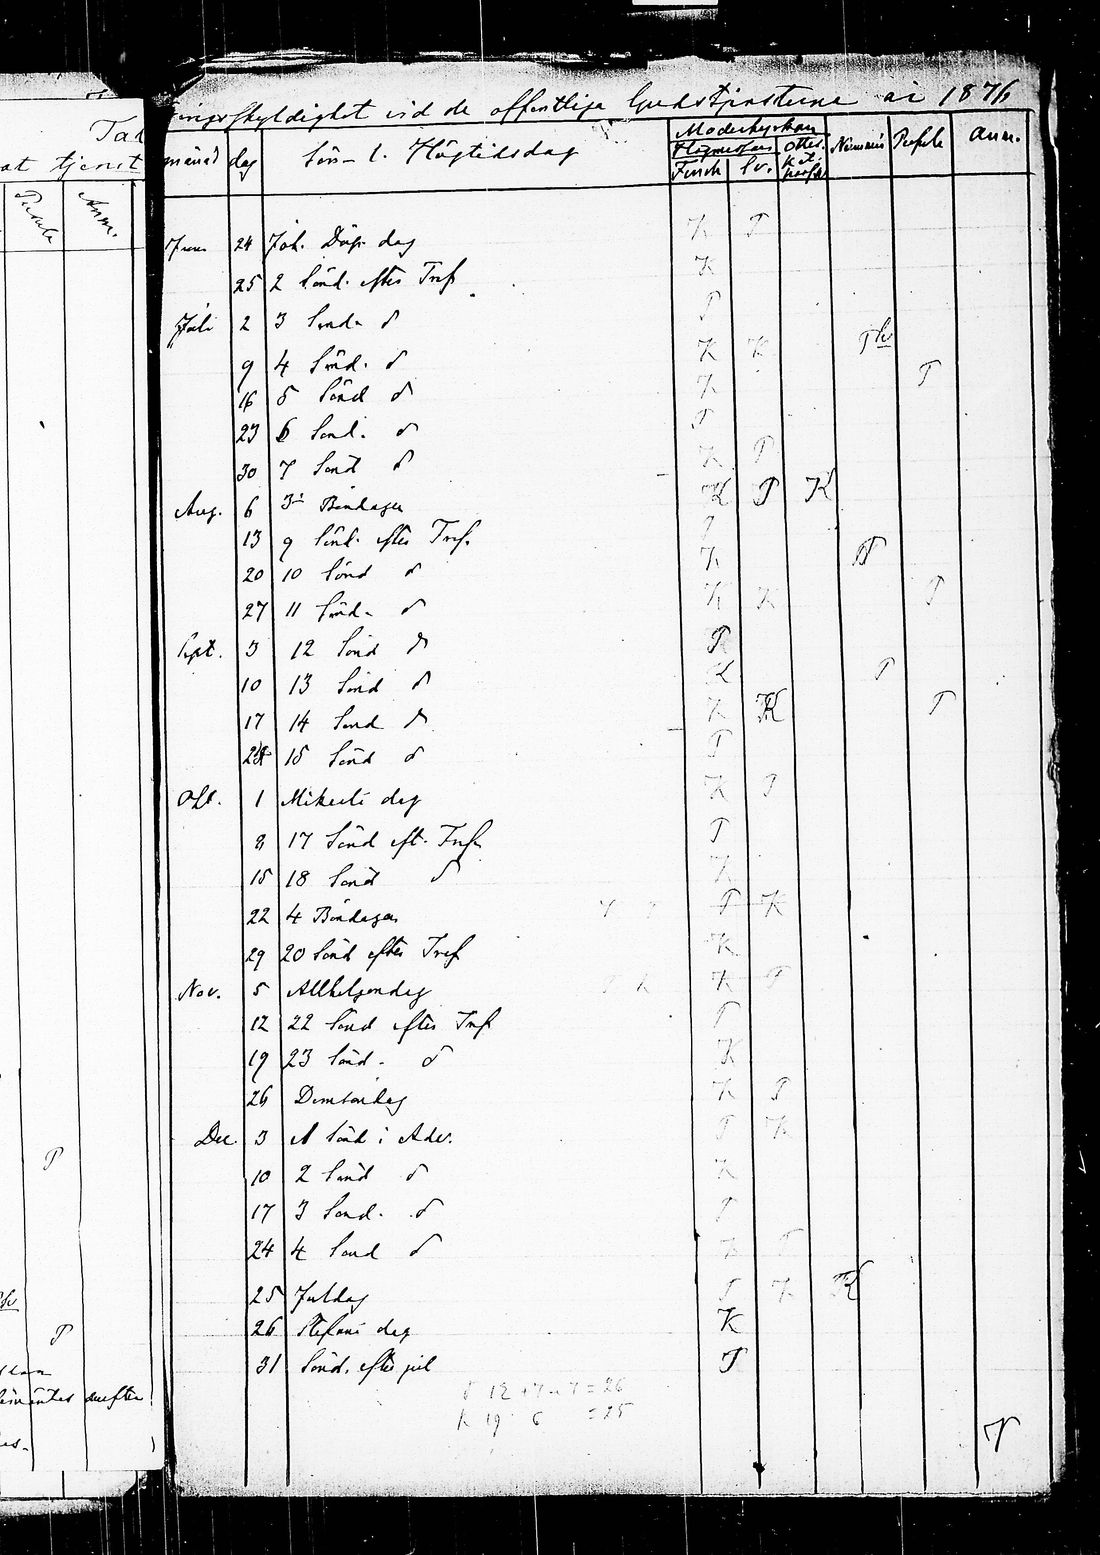 skyldighet vid de offentliga Gudstjensterne år 1876
månad dag Sön- l. Högtidsdag Moderkyrkan Anm.
Högmessan
Finsk Sv.
Juni 24 Joh. Döp. dag K T
25 2 Sönd. efter Tref K
Juli 2 3 Sönd. d T
9 4 Sönd. d K K
16 5 Sönd d K T
23 6 Sond. d T
30 7 Sönd d K T
Aug. 6 3e Böndagen K T K
13 9 Sönd. efter Tref. T
20 10 Sönd d K T
27 11 Sönd. d K K T
Sept. 3 12 Sönd d
10 13 Sönd d K T
17 14 Sönd d K K T
24 15 Sönd d T
Okt. 1 Mikaeli dag K T
8 17 Sönd eft. Tref. T
15 18 Sönd d K
22 4 Böndagen T K
29 20 Sönd efter Tref K
Nov. 5 Allhelgondag T K K T
12 22 Sönd efter Tref T
19 23 Sönd. d K
26 Domsöndag K T
Dec 3 1 Sönd i Adv. T K
10 2 Sönd d K
17 3 Sönd. d T
24 4 Sönd d K T
25 Juldag T K K
26 Stefani dag K
31 Sönd. efter jul T
= 26
K 19 6 = 25
Anm.
T
T